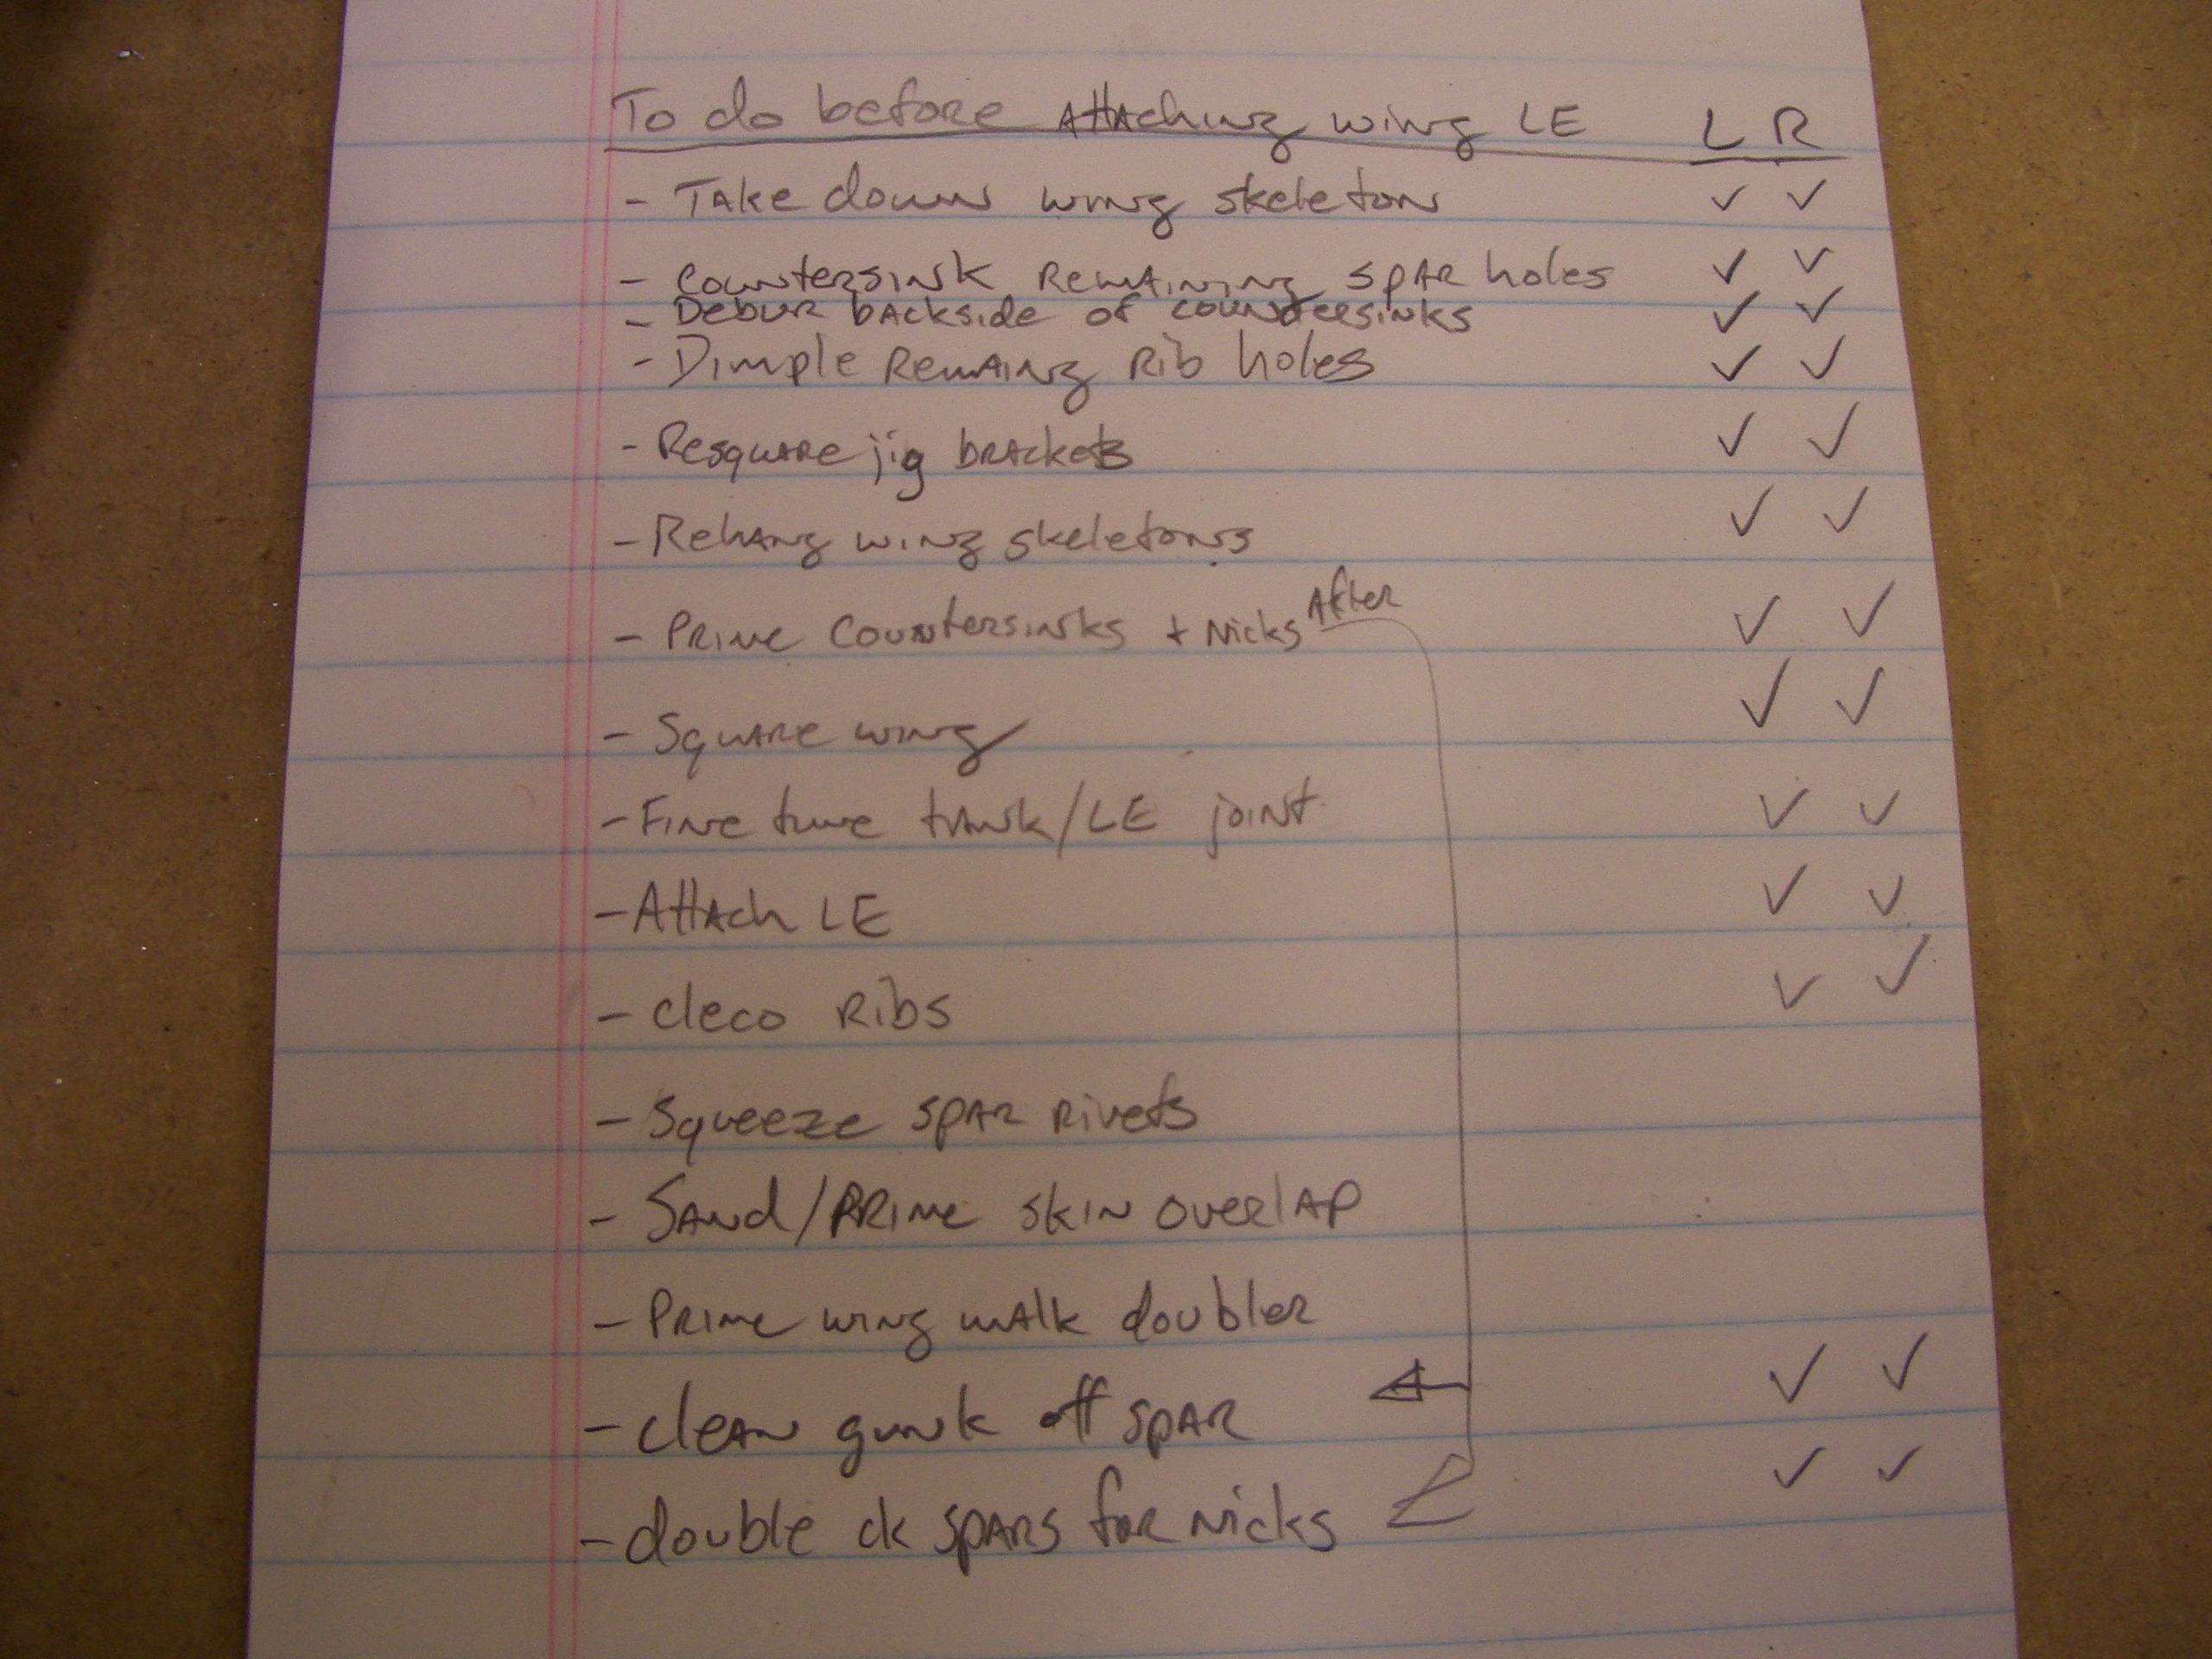 To do before Attaching wing LE L R
- Take down wing skeleton ✓ ✓
- Countersink Remaining spar holes ✓ ✓
- Debur backside of countersinks ✓ ✓
- Dimple Remaing Rib holes ✓ ✓
- Resquare jig brackets ✓ ✓
- Rehang wing skeletons ✓ ✓
- Prime Countersinks + Nicks After ✓ ✓
- Square wing ✓ ✓
- Fine tune tank/LE joint ✓ ✓
- Attach LE ✓ ✓
- cleco Ribs ✓ ✓
- Squeeze spar Rivets
- Sand/Prime skin overlap
- Prime wing walk doubler
- clean gunk off spar ✓ ✓
- double ck spars for Nicks ✓ ✓